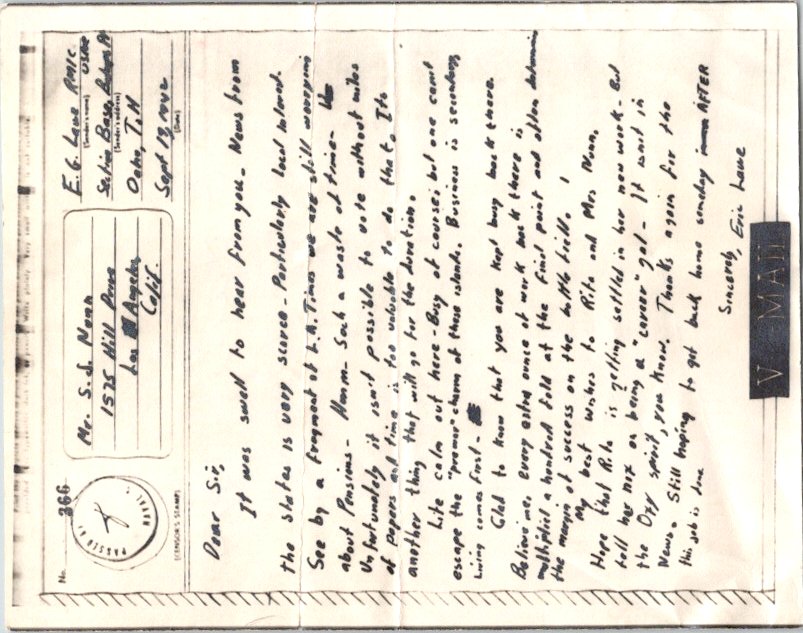 No. 366
PASSED BY
(CENSOR'S STAMP)
Mr. S. J. Nunn
1525 Hill Drive
Los Angeles
Calif.
E. G. Lawe RM1c
(Sender's name) USCG
Section Base,
(Sender's address)
Oahu, T.H
Sept 13, 1942
(Date)
Dear Sir,
It was swell to hear from you - News from
the states is very scarce - Particularly local interest.
See by a fragment of L.A. Times we are still worrying
about Pensions - Hmmm - Such a waste of time -
Unfortunately it isn't possible to vote without miles
of papers and time is too valuable to do that. It's
another thing that will go for the duration.
Life calm out here - Busy of course; but one can't
escape the "promos" charm of these islands. Business is secondary
Living comes first -
Glad to know that you are kept busy back there.
Believe me, every extra ounce of work back there is
multiplied a hundred fold at the final point and often determines
the margin of success on the battle field. !
My best wishes to Rita and Mrs Nunn.
Hope that Rita is getting settled in her new work - But
tell her nix on being a "cover" gal - It isn't in
the Oxy spirit, you know. Thanks again for the
News. Still hoping to get back home someday AFTER
this job is done
Sincerely, Eric Lawe
V - MAIL